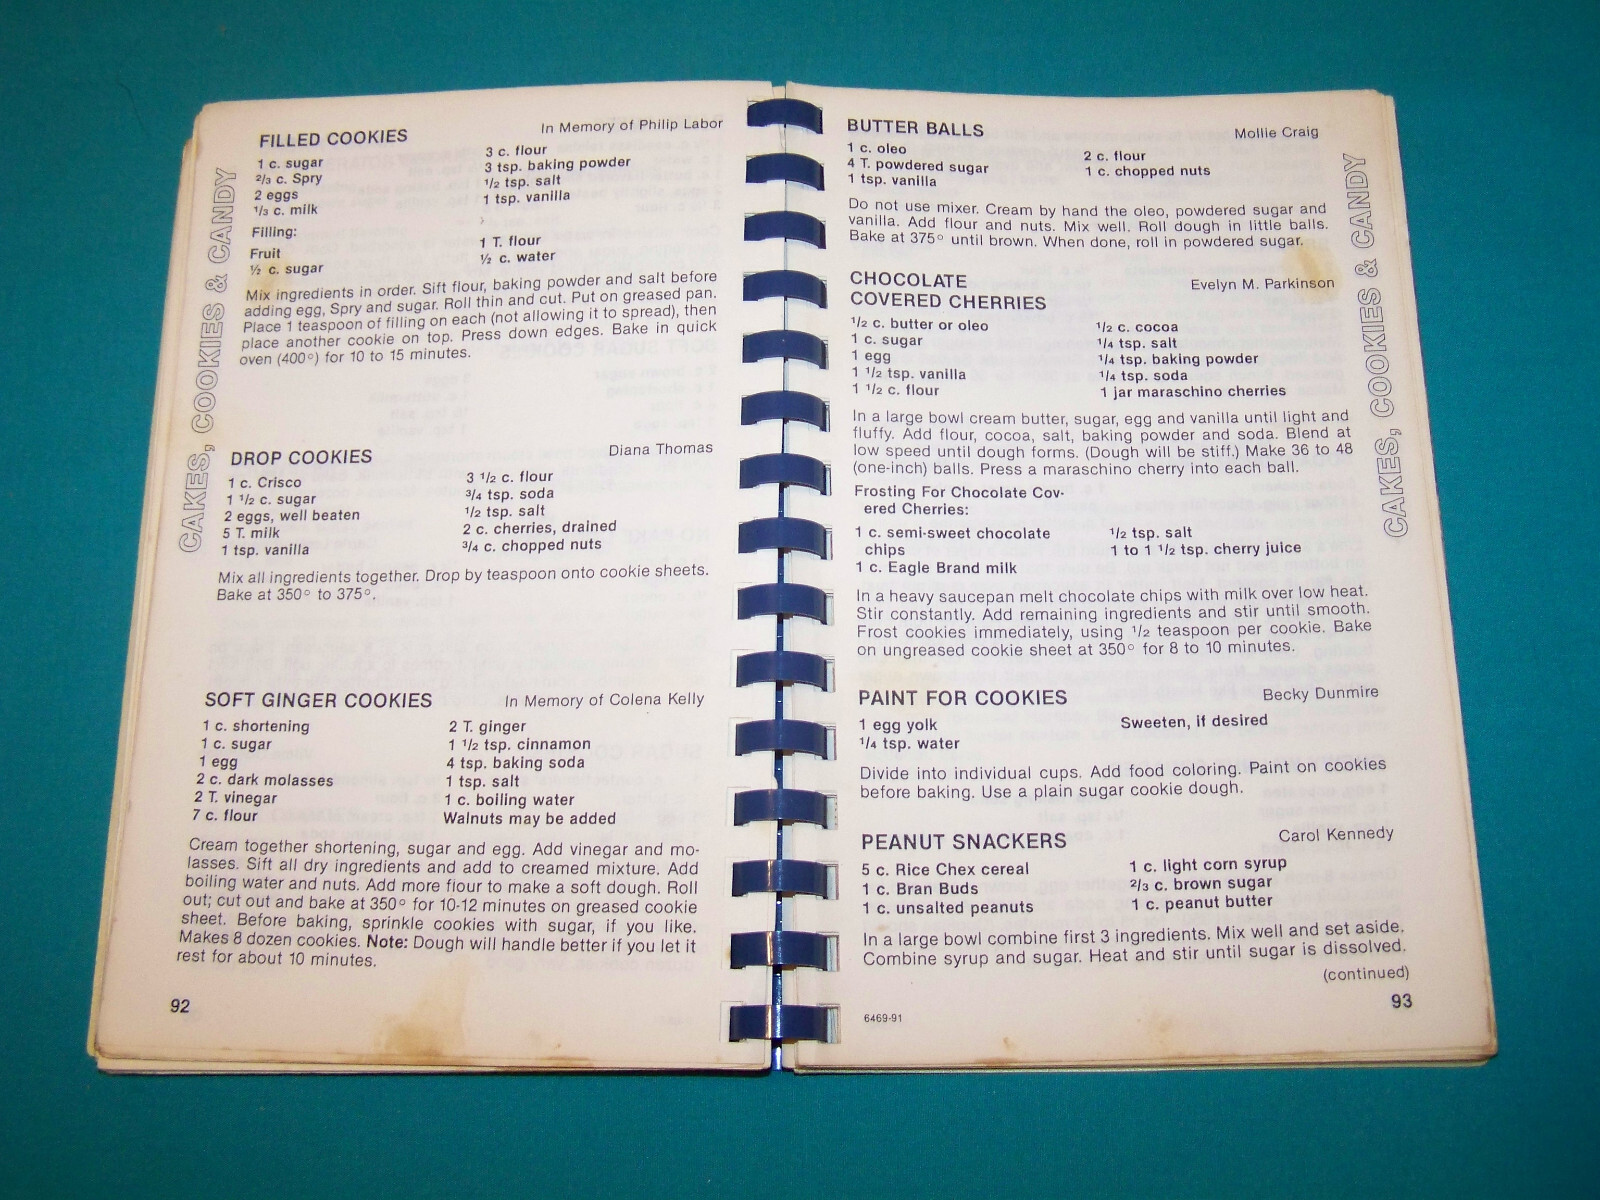 CAKES, COOKIES & CANDY
FILLED COOKIES
In Memory of Philip Labor
1 c. sugar
2/3 c. Spry
2 eggs
1/3 c. milk
3 c. flour
3 tsp. baking powder
1/2 tsp. salt
1 tsp. vanilla
Filling:
Fruit
½ c. sugar
1 T. flour
½ c. water
Mix ingredients in order. Sift flour, baking powder and salt before
adding egg, Spry and sugar. Roll thin and cut. Put on greased pan.
Place 1 teaspoon of filling on each (not allowing it to spread), then
place another cookie on top. Press down edges. Bake in quick
oven (400°) for 10 to 15 minutes.
DROP COOKIES
Diana Thomas
1 c. Crisco
1 1/2 c. sugar
2 eggs, well beaten
5 T. milk
1 tsp. vanilla
3 1/2 c. flour
3/4 tsp. soda
1/2 tsp. salt
2 c. cherries, drained
3/4 c. chopped nuts
Mix all ingredients together. Drop by teaspoon onto cookie sheets.
Bake at 350° to 375°.
SOFT GINGER COOKIES
In Memory of Colena Kelly
1 c. shortening
1 c. sugar
1 egg
2 c. dark molasses
2 T. vinegar
7 c. flour
2 T. ginger
1 1/2 tsp. cinnamon
4 tsp. baking soda
1 tsp. salt
1 c. boiling water
Walnuts may be added
Cream together shortening, sugar and egg. Add vinegar and mo-
lasses. Sift all dry ingredients and add to creamed mixture. Add
boiling water and nuts. Add more flour to make a soft dough. Roll
out; cut out and bake at 350° for 10-12 minutes on greased cookie
sheet. Before baking, sprinkle cookies with sugar, if you like.
Makes 8 dozen cookies. Note: Dough will handle better if you let it
rest for about 10 minutes.
92
BUTTER BALLS
Mollie Craig
1 c. oleo
4 T. powdered sugar
1 tsp. vanilla
2 c. flour
1 c. chopped nuts
Do not use mixer. Cream by hand the oleo, powdered sugar and
vanilla. Add flour and nuts. Mix well. Roll dough in little balls.
Bake at 375° until brown. When done, roll in powdered sugar.
CHOCOLATE
COVERED CHERRIES
Evelyn M. Parkinson
1/2 c. butter or oleo
1 c. sugar
1 egg
1 1/2 tsp. vanilla
1 1/2 c. flour
1/2 c. cocoa
1/4 tsp. salt
1/4 tsp. baking powder
1/4 tsp. soda
1 jar maraschino cherries
In a large bowl cream butter, sugar, egg and vanilla until light and
fluffy. Add flour, cocoa, salt, baking powder and soda. Blend at
low speed until dough forms. (Dough will be stiff.) Make 36 to 48
(one-inch) balls. Press a maraschino cherry into each ball.
Frosting For Chocolate Cov-
ered Cherries:
1 c. semi-sweet chocolate
chips
1 c. Eagle Brand milk
1/2 tsp. salt
1 to 1 1/2 tsp. cherry juice
In a heavy saucepan melt chocolate chips with milk over low heat.
Stir constantly. Add remaining ingredients and stir until smooth.
Frost cookies immediately, using 1/2 teaspoon per cookie. Bake
on ungreased cookie sheet at 350° for 8 to 10 minutes.
PAINT FOR COOKIES
Becky Dunmire
1 egg yolk
1/4 tsp. water
Sweeten, if desired
Divide into individual cups. Add food coloring. Paint on cookies
before baking. Use a plain sugar cookie dough.
PEANUT SNACKERS
Carol Kennedy
5 c. Rice Chex cereal
1 c. Bran Buds
1 c. unsalted peanuts
1 c. light corn syrup
2/3 c. brown sugar
1 c. peanut butter
In a large bowl combine first 3 ingredients. Mix well and set aside.
Combine syrup and sugar. Heat and stir until sugar is dissolved.
(continued)
6469-91
93
CAKES, COOKIES & CANDY